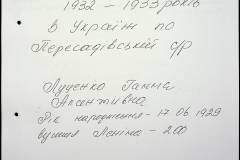 1932 – 1933 років
в Україні по
Пересадівській с/р
Луценко Ганна
Аксентівна
Рік народження – 17.06.1929
вулиця Леніна – 200